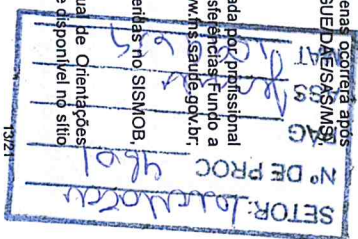 enas ocorrerá após
GUE/DAE/SAS/MS).
ada por profissional
sferências Fundo a
w.fns.saude.gov.br,
eridas no SISMOB,
ual de Orientações
e disponível no sítio
13/21
SETOR:
Nº DE PROC 4601
PAG
ASS
MAT